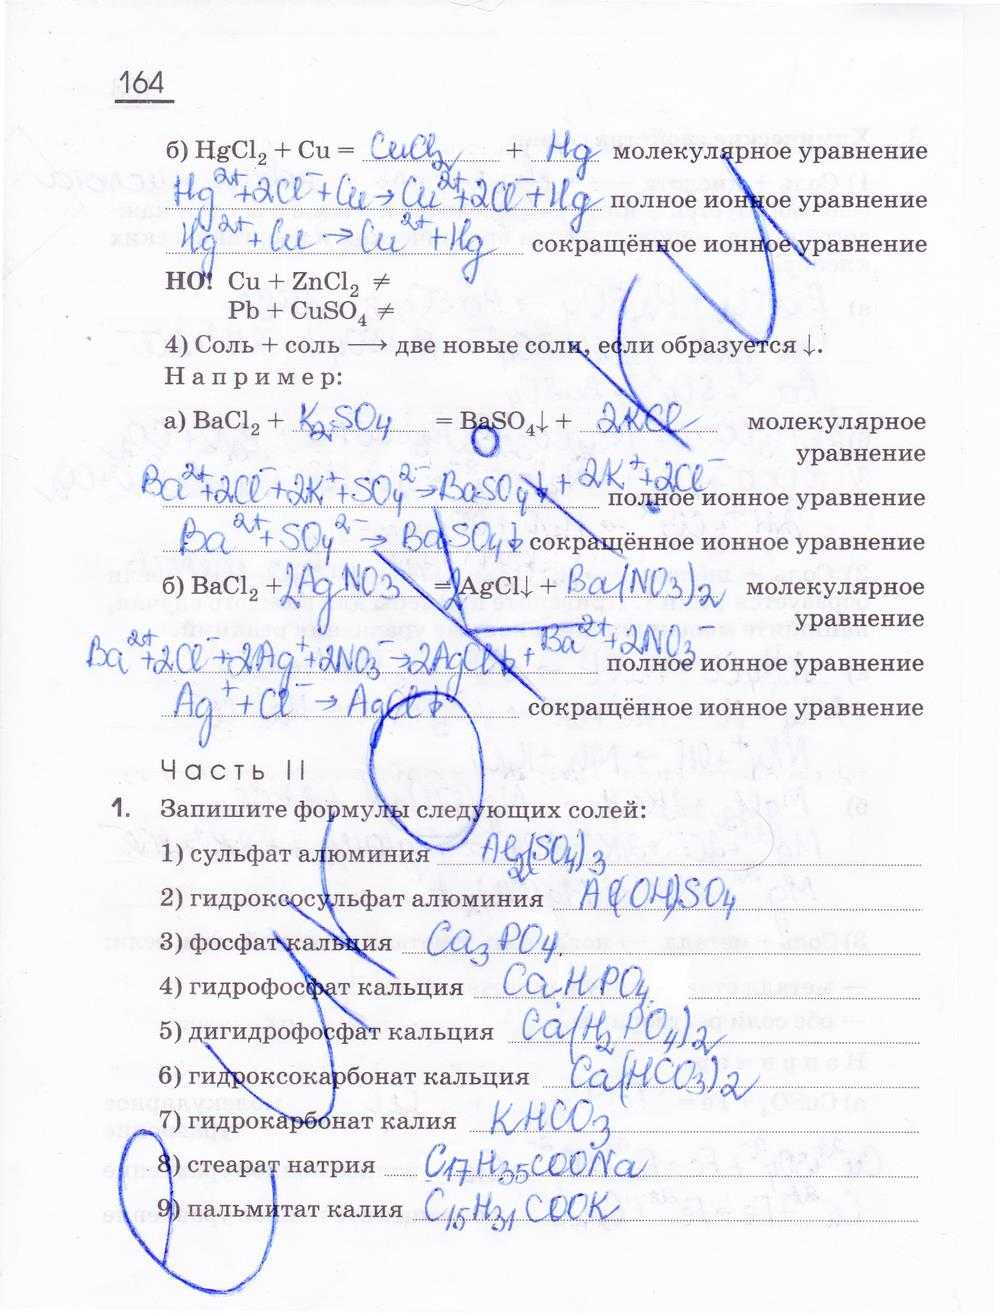 164
б) HgCl₂ + Cu = CuCl₂ + Hg молекулярное уравнение
Hg²⁺+2Cl⁻+Cu→Cu²⁺+2Cl⁻+Hg полное ионное уравнение
Hg²⁺+Cu→Cu²⁺+Hg сокращённое ионное уравнение
НО! Cu + ZnCl₂ ≠
Pb + CuSO₄ ≠
4) Соль + соль ⟶ две новые соли, если образуется ↓.
Например:
а) BaCl₂ + K₂SO₄ = BaSO₄↓ + 2KCl молекулярное
уравнение
Ba²⁺+2Cl⁻+2K⁺+SO₄²⁻→BaSO₄↓+2K⁺+2Cl⁻ полное ионное уравнение
Ba²⁺+SO₄²⁻→BaSO₄↓ сокращённое ионное уравнение
б) BaCl₂ + 2AgNO3 = 2AgCl↓ + Ba(NO3)₂ молекулярное
уравнение
Ba²⁺+2Cl⁻+2Ag⁺+2NO₃⁻→2AgCl↓+Ba²⁺+2NO₃⁻ полное ионное уравнение
Ag⁺+Cl⁻→AgCl↓ сокращённое ионное уравнение
Часть II
1. Запишите формулы следующих солей:
1) сульфат алюминия Al₂(SO₄)₃
2) гидроксосульфат алюминия Al(OH)SO₄
3) фосфат кальция Ca₃PO₄
4) гидрофосфат кальция CaHPO₄
5) дигидрофосфат кальция Ca(H₂PO₄)₂
6) гидроксокарбонат кальция Ca(HCO₃)₂
7) гидрокарбонат калия KHCO₃
8) стеарат натрия C₁₇H₃₅COONa
9) пальмитат калия C₁₅H₃₁COOK